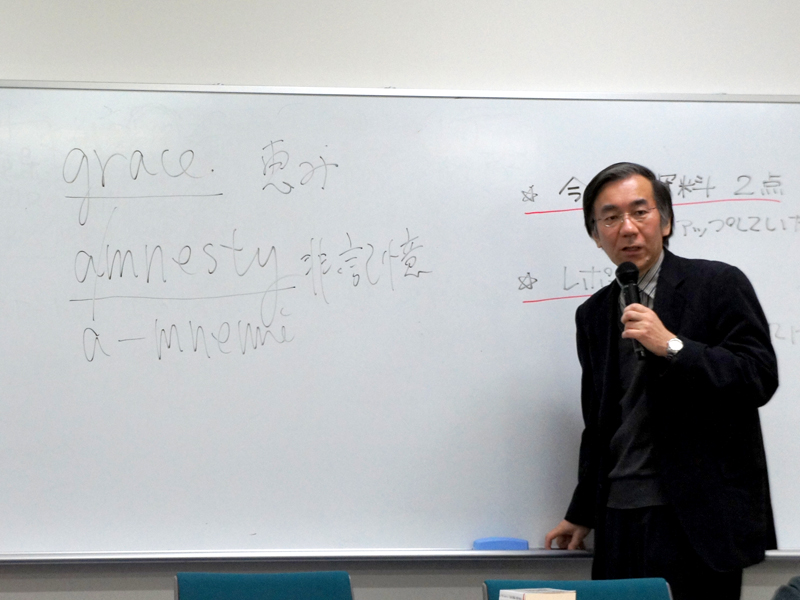 grace. 恵み
amnesty 非記憶
a-mnemi
☆ 今 資料 2点
アップしていた
☆ レポ